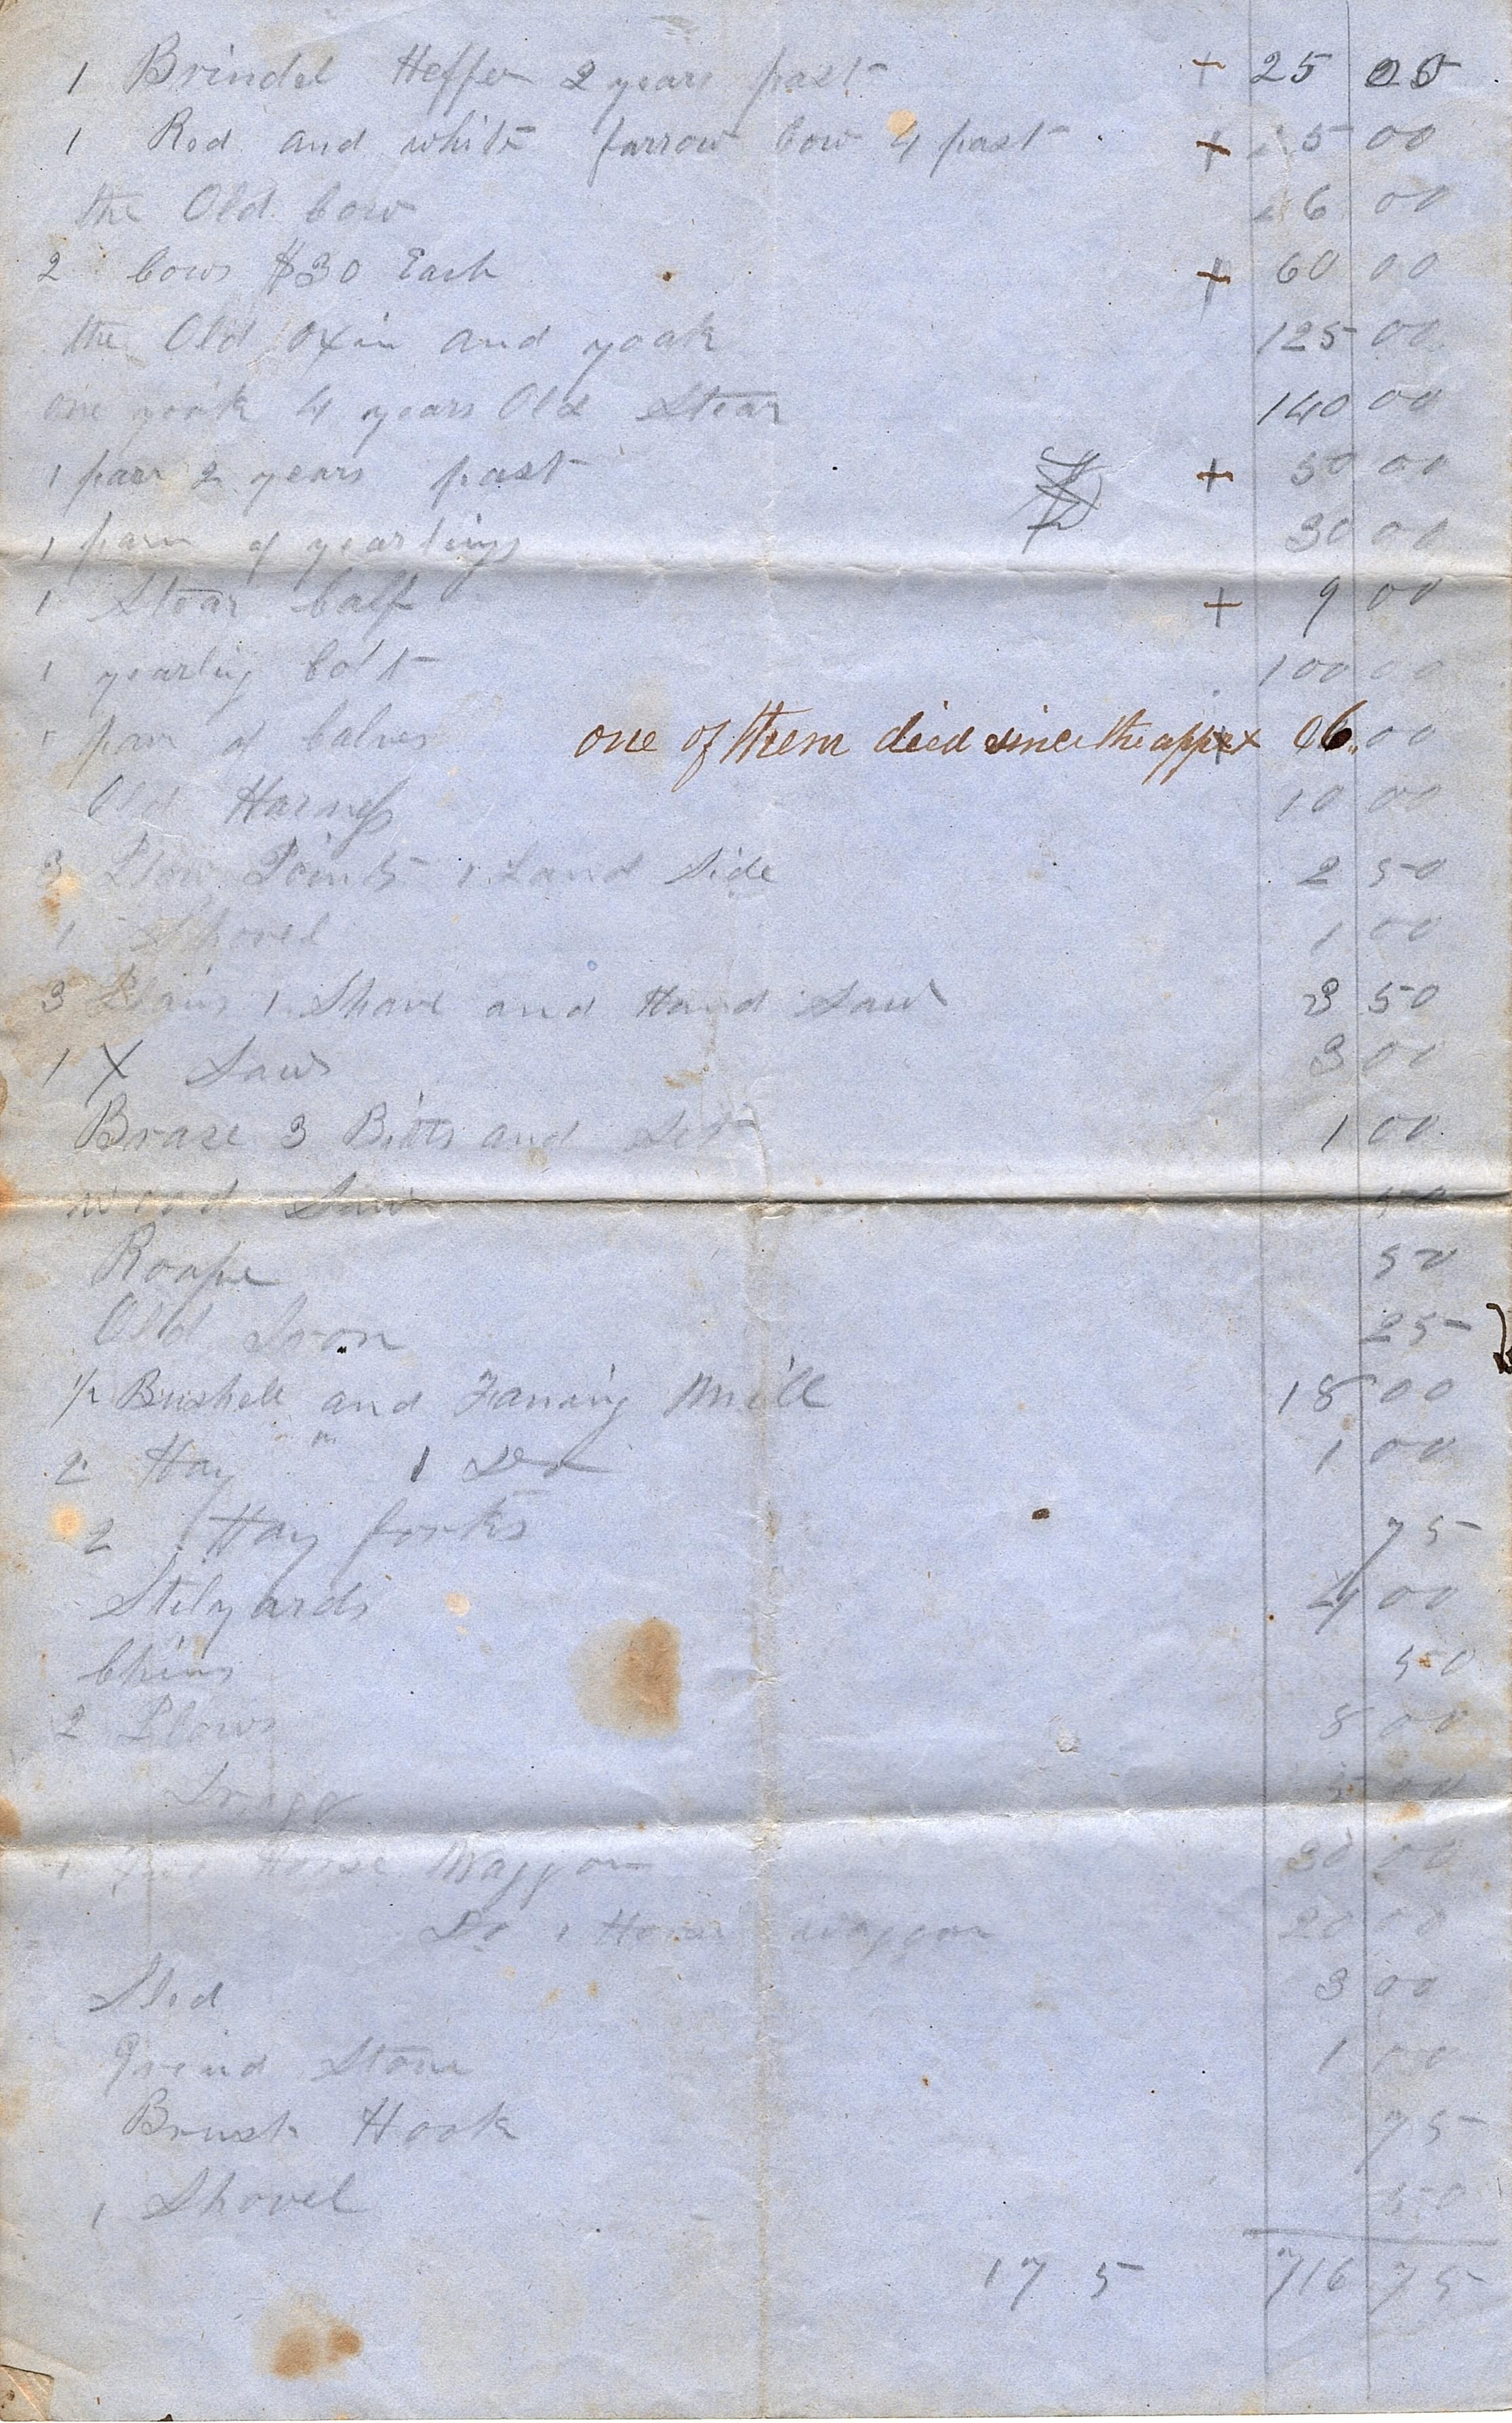 1 Brindel Heffer 2 years past + 25 00
1 Red and white farrow Cow 4 past + 5 00
the Old Cow 6 00
2 Cows $30 Each + 60 00
the Old Oxin and yoak 125 00
one yoak 4 years Old Stear 140 00
1 parr 2 years past + 50 00
1 parr of yearlings 30 00
1 Stear Calf + 9 00
1 yearling Colt 100 00
1 parr of Calves one of them died since the appr x 06 00
Old Harness 10 00
3 Plow Points 1 Land Side 2 50
1 Shovel 1 00
3 Plains 1 Shave and Hand Saw 3 50
1 X Saw 3 00
Brase 3 Bitts and Set 1 00
wood Saw 50
Roape 50
Old Iron 25
1/2 Bushell and Faning Mill 18 00
2 Hay " 1 Do 1 00
2 Hay forks 75
Stilyards 4 00
Chins 50
2 Plows 8 00
Dragg 00
1 Two Horse Waggon 30 00
Do 1 Horse waggon 20 00
Sled 3 00
Grind Stone 1 00
Brush Hook 75
1 Shovel 50
17 5 716 75